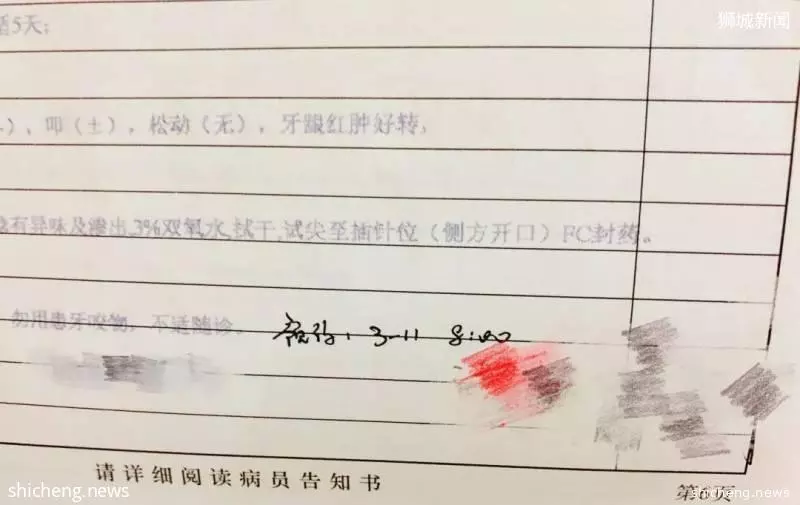 狮城新闻
shicheng.news
5天;
),叩(±),松动(无),牙龈红肿好转,
有异味及渗出,3%双氧水,拭干,试尖至插针位(侧方开口)FC封药。
勿用患牙咬物,不适随诊。 3-11 8:00
请详细阅读病员告知书
第6页
shicheng.news
shicheng.news